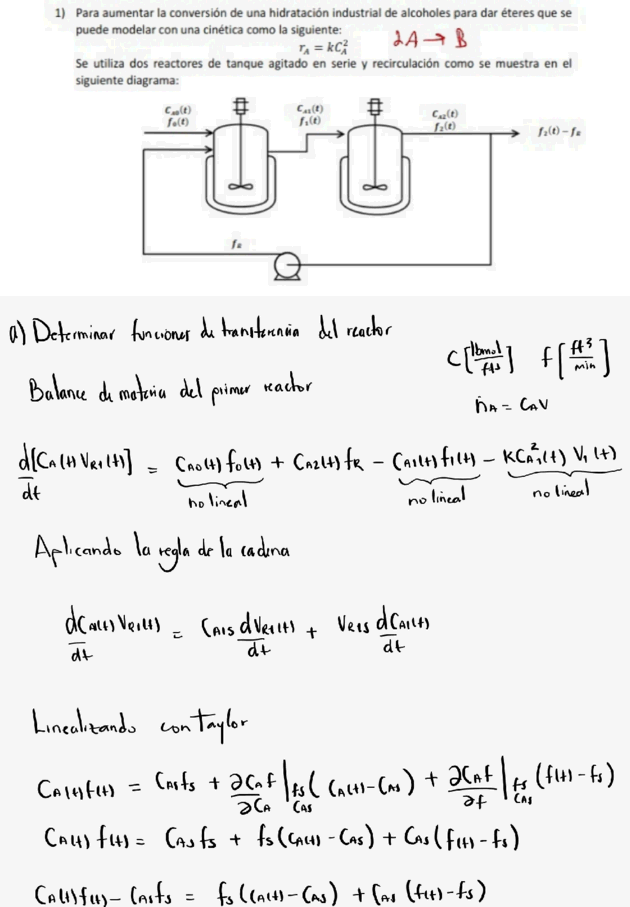 1) Para aumentar la conversión de una hidratación industrial de alcoholes para dar éteres que se
puede modelar con una cinética como la siguiente:
r_A = kC_A^2
2A → B
Se utiliza dos reactores de tanque agitado en serie y recirculación como se muestra en el
siguiente diagrama:
C_A0(t)
f_0(t)
C_A1(t)
f_1(t)
C_A2(t)
f_2(t)
f_2(t) - f_R
f_R
a) Determinar funciones de transferencia del reactor
C [lbmol/ft3] f [ft3/min]
Balance de materia del primer reactor
ṅ_A = C_A V
d[C_A(t) V_R1(t)]/dt = C_A0(t) f_0(t) + C_A2(t) f_R - C_A1(t) f_1(t) - K C_A1^2(t) V_1(t)
no lineal no lineal no lineal
Aplicando la regla de la cadena
dC_A1(t) V_R1(t)/dt = C_A1s dV_R1(t)/dt + V_R1s dC_A1(t)/dt
Linealizando con Taylor
C_A(t) f(t) = C_As f_s + ∂C_A f/∂C_A |_fs C_As (C_A(t) - C_As) + ∂C_A f/∂f |_fs C_As (f(t) - f_s)
C_A(t) f(t) = C_As f_s + f_s (C_A(t) - C_As) + C_As (f(t) - f_s)
C_A(t) f(t) - C_As f_s = f_s (C_A(t) - C_As) + C_As (f(t) - f_s)